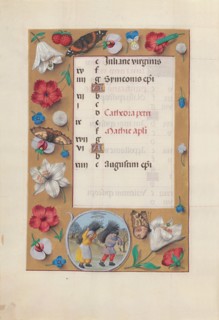 e Iuliane virginis
xv f
iiii g Symeonis epi
A
xii b
i c
d Cathedra petri
ix e
f Mathie apli
xvii g
vi A
b
c Augustini epi